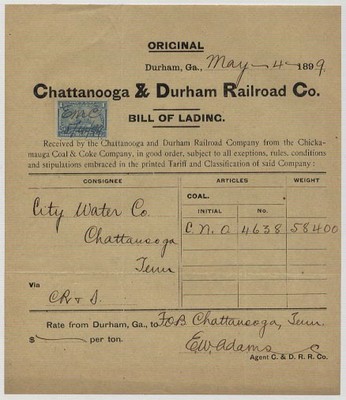 ORIGINAL
Durham, Ga., May 4 1899.
Chattanooga & Durham Railroad Co.
BILL OF LADING.
Received by the Chattanooga and Durham Railroad Company from the Chicka-
mauga Coal & Coke Company, in good order, subject to all exeptions, rules, conditions
and stipulations embraced in the printed Tariff and Classification of said Company:
CONSIGNEE ARTICLES WEIGHT
COAL.
INITIAL No.
City Water Co. C. N. O. 4638 58400
Chattanooga
Tenn
Via
CR & S.
Rate from Durham, Ga., to FOB Chattanooga, Tenn.
$ per ton.
E.W. Adams
Agent C. & D. R. R. Co.